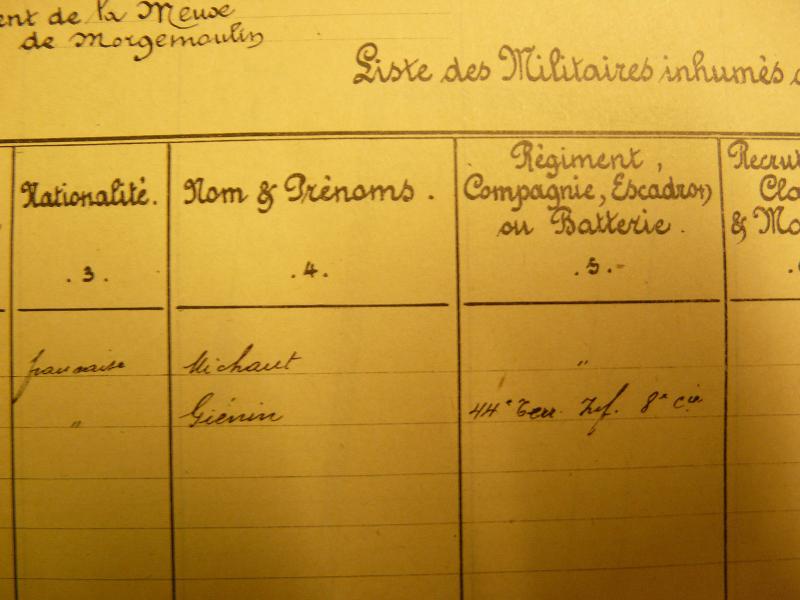 ent de la Meuse
de Morgemoulin
Liste des Militaires inhumés
Nationalité.
Nom & Prénoms.
Régiment,
Compagnie, Escadron
ou Batterie.
Recrut
Cla
& Ma
. 3 .
. 4 .
. 5 . -
française
Michaut
"
"
Giénin
44e Terr. Inf. 8e Cie